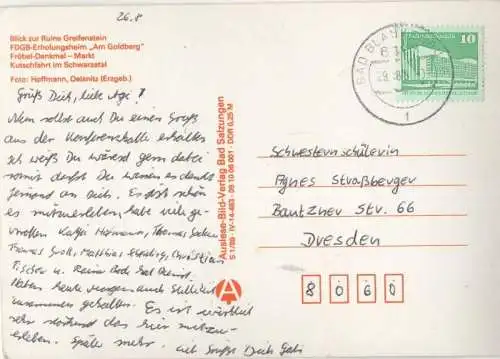 26.8
Blick zur Ruine Greifenstein
FDGB-Erholungsheim „Am Goldberg"
Fröbel-Denkmal – Markt
Kutschfahrt im Schwarzatal
Foto: Hoffmann, Oelsnitz (Erzgeb.)
Grüß Dich, liebe Agi!
Nun sollst auch Du einen Gruß
aus der Konferenzhalle erhalten
ich weiß Du wärst gern dabei
Jemand an Dich. Es ist schön
es mitzuerleben, habe viele ge-
troffen Katja Hofmann, Thomas
Thomas Groß, Matthias Christian
Haben heute morgen auch Stille Zeit
zusammen gehalten. Es ist wirklich
sehr das hier mitzu-
erleben. Später mehr. Lieb grüßt Dich Gabi
Auslese-Bild-Verlag Bad Salzungen
S 1/89 · IV-14-483 · 09 10 06 001 · DDR 0,25 M
A
BAD BLAN
1
10
Schwesternschülerin
Agnes Straßberger
Bautzner Str. 66
Dresden
8 0 6 0